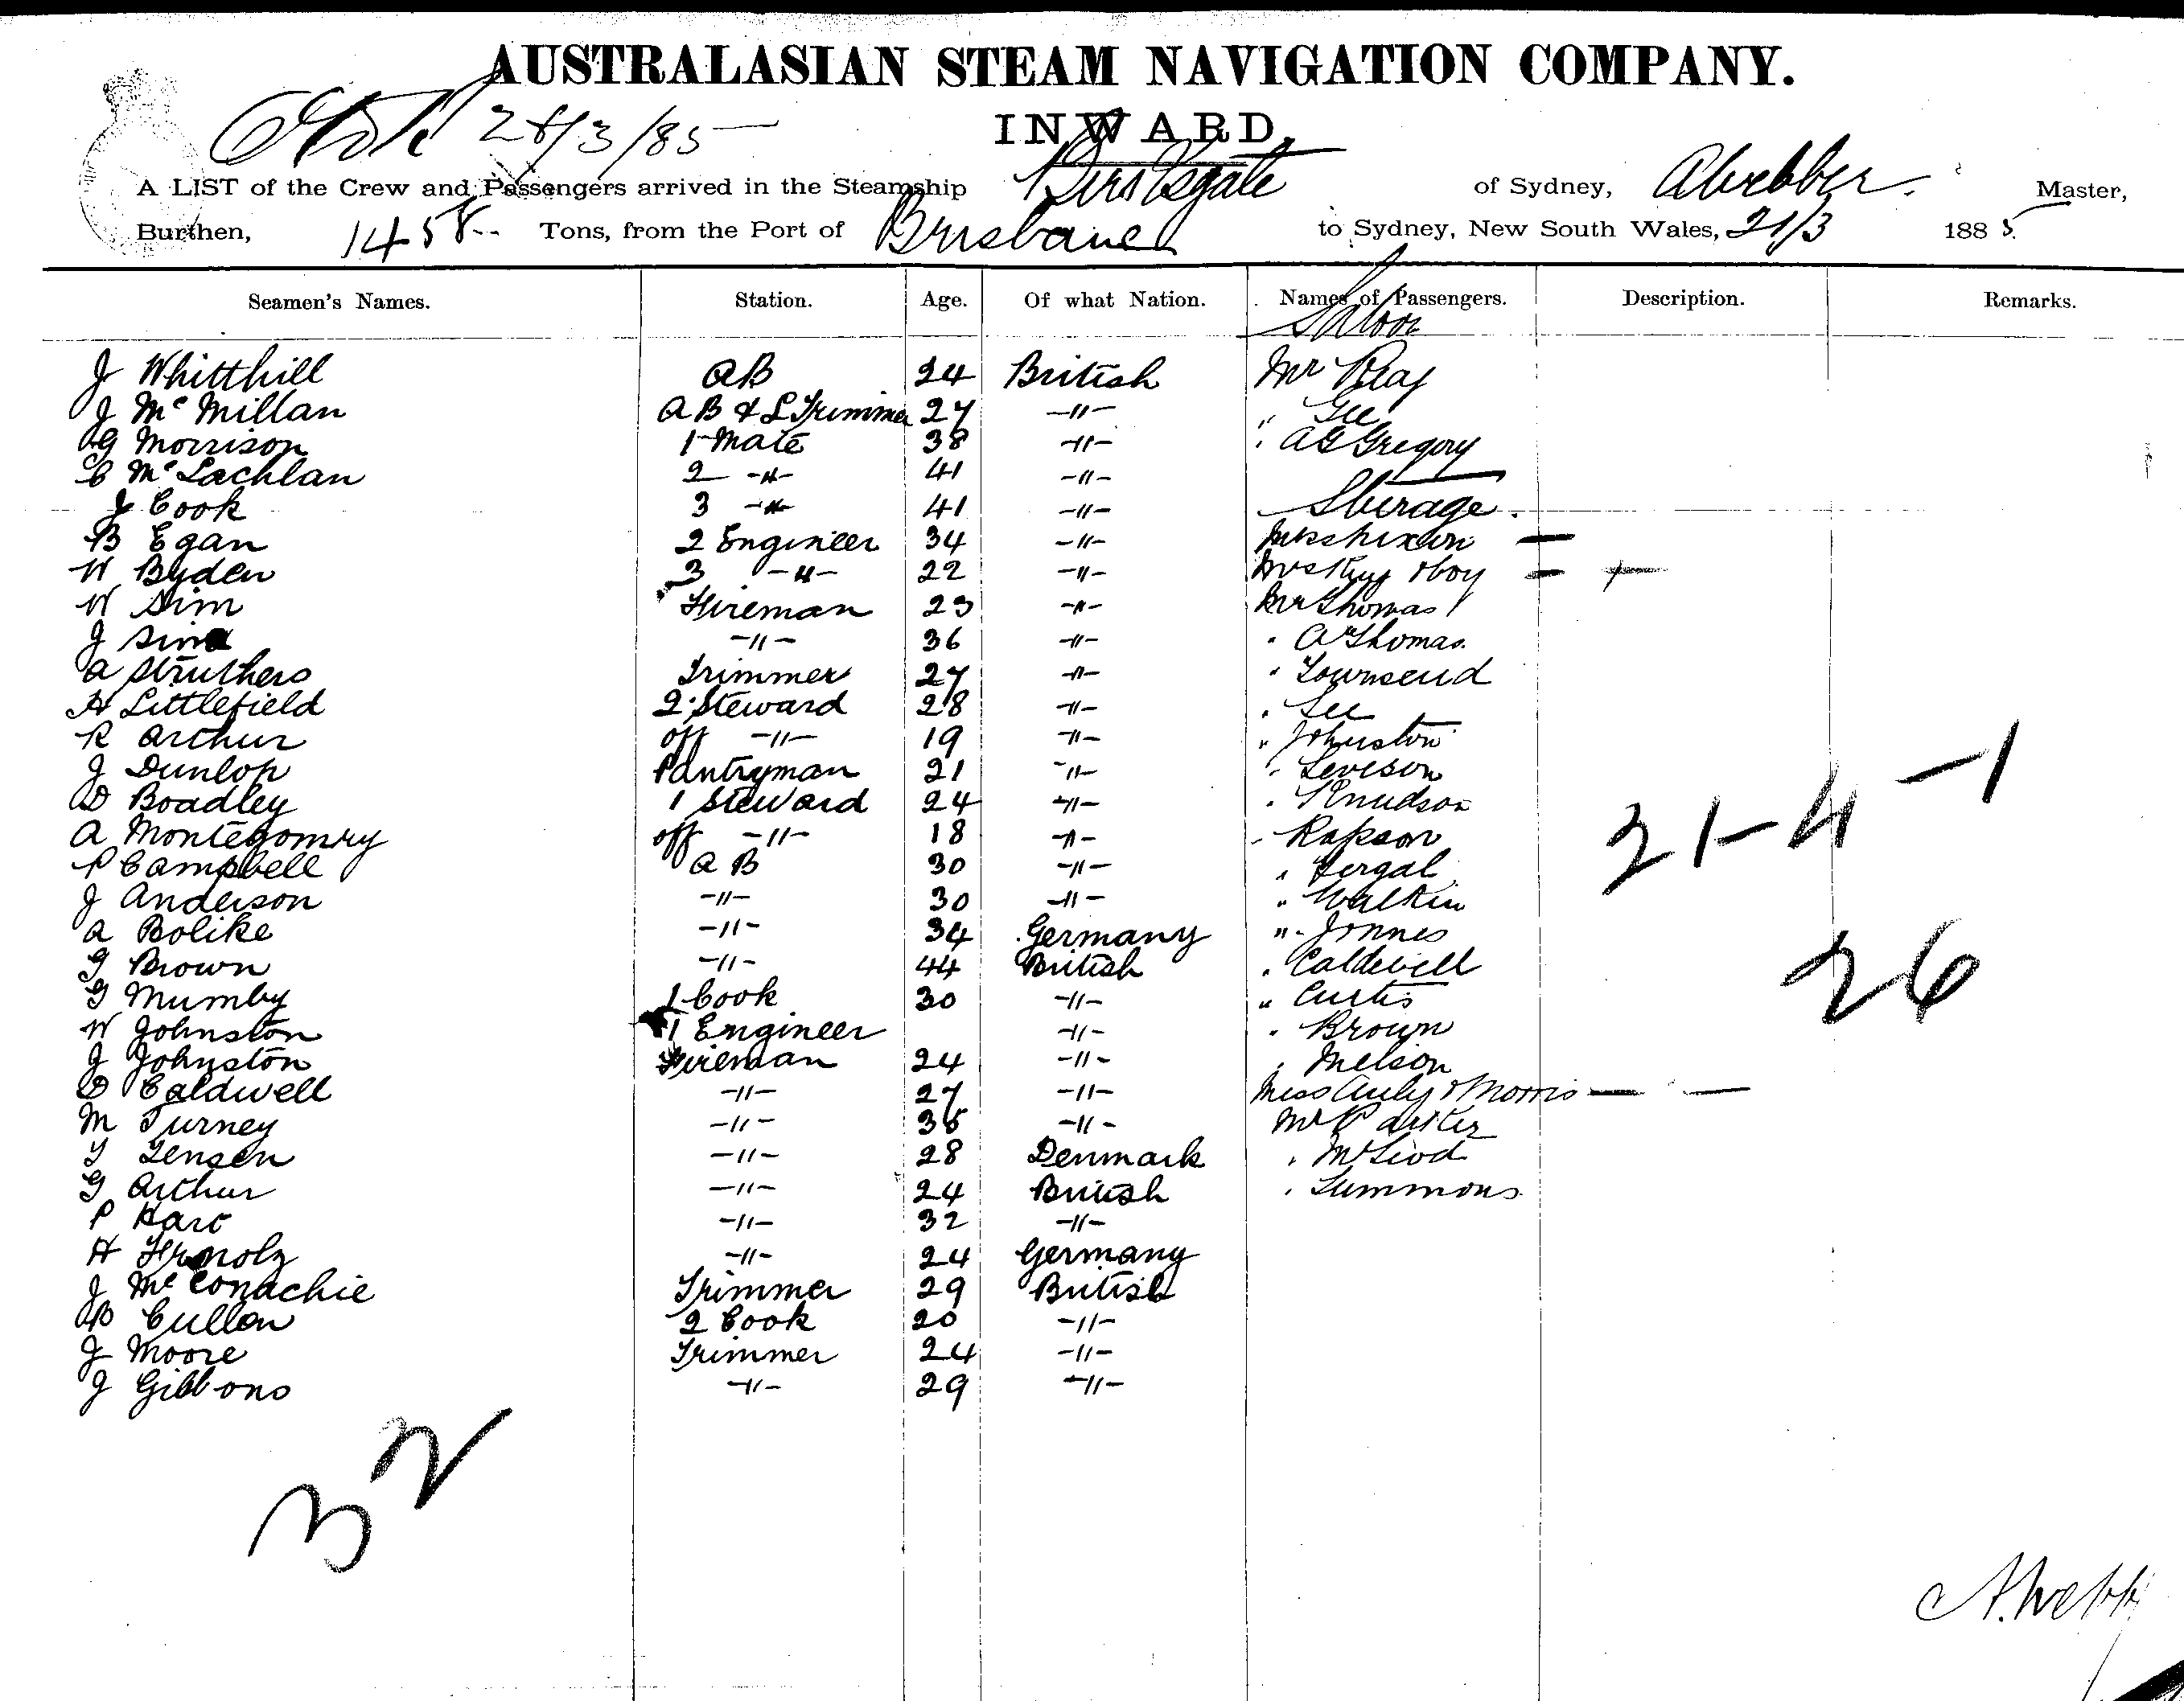 AUSTRALASIAN STEAM NAVIGATION COMPANY.
28/3/85
INWARD.
A LIST of the Crew and Passengers arrived in the Steamship Birksgate of Sydney, A Webber Master,
Burthen, 1458 Tons, from the Port of Brisbane to Sydney, New South Wales, 21/3 1885
Seamen's Names. Station. Age. Of what Nation. Names of Passengers. Description. Remarks.
Saloon
J Whitthill AB 24 British Mr Play
J McMillan AB & L Trimmer 27 -"- " Gee
G Morrison 1 Mate 38 -"- " A G Gregory
C McLachlan 2 -"- 41 -"-
J Cook 3 -"- 41 -"- Sterage.
B Egan 2 Engineer 34 -"- —
W Byden 3 -"- 22 -"- Mrs King & boy — +
W Sim Fireman 23 -"- Mr Thomas
J Sim -"- 36 -"- " A Thomas
A Struthers Trimmer 27 -"- " Townsend
H Littlefield 2 Steward 28 -"- " Lee
R Arthur off -"- 19 -"- " Johnston
J Dunlop Pantryman 21 -"- " Leveson
D Boadley 1 Steward 24 -"- " Knudson
A Montegomry off -"- 18 -"- " Rapson
P Campbell AB 30 -"- " Fergal
J Anderson -"- 30 -"- " Walkin
A Bolike -"- 34 Germany " Jonnes
G Brown -"- 44 British " Caldwell
G Mumby 1 Cook 30 -"- " Curtis
W Johnston 1 Engineer -"- " Brown
J Johnston Fireman 24 -"- " Nelson
D Caldwell -"- 27 -"- Miss & Morris — —
M Turney -"- 35 -"- Mr Parker
J Jensen -"- 28 Denmark " McLeod
G Arthur -"- 24 British " Summons
P Hart -"- 32 -"-
H -"- 24 Germany
J McConachie Trimmer 29 British
B Cullen 2 Cook 20 -"-
J Moore Trimmer 24 -"-
J Gibbons -"- 29 -"-
21-4-1
26
32
A. Webb